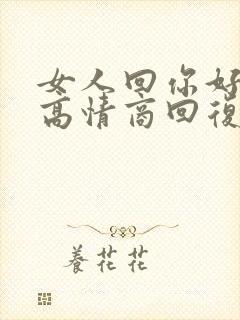 女人回你好
高情商回復
養花花